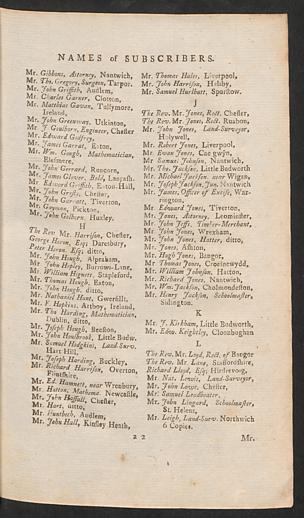 NAMES OF SUBSCRIBERS.
Mr. Gibbons, Attorney, Nantwich,
Mr. Tho. Gregory, Surgeon, Tarpor.
Mr. John Griffith, Audlem,
Mr. Charles Garner, Clotton,
Mr. Matthias Gawan, Tullymore,
Ireland,
Mr. John Greenway, Utkinton,
Mr. J. Goulburn, Engineer, Chester
Mr. Edward Godfrey,
Mr. James Garrat, Eaton,
Mr. Wm. Gough, Mathematician,
Elesmere,
Mr. John Gerrard, Runcorn,
Mr. James Glover, Bold, Lancash.
Mr. Edward Griffith, Eaton-Hall,
Mr. John Grosse, Chester,
Mr. John Garratt, Tiverton,
Mr. Guyman, Picton,
Mr. John Golborn, Huxley.
H
The Rev. Mr. Harrison, Chester,
George Heron, Esq; Daresbury,
Peter Heron, Esq; ditto,
Mr. John Hough, Alpraham,
Mr. John Hopley, Burrows-Lane,
Mr. William Hignett, Stapleford,
Mr. Thomas Hough, Eaton,
Mr. John Hough, ditto,
Mr. Nathaniel Hunt, Gwersillt,
Mr. F. Hopkins, Artboy, Ireland,
Mr. Tho. Harding, Mathematician,
Dublin, ditto,
Mr. Joseph Hough, Beeston,
Mr. John Houlbrook, Little Budw.
Mr. Samuel Hodgkins, Land-Surv.
Hart Hill,
Mr. Joseph Harding, Buckley,
Mr. Richard Harrison, Overton,
Flintshire,
Mr. Ed. Hammett, near Wrenbury,
Mr. Hutton, Mathema. Newcastle,
Mr. John Hassall, Chester,
Mr. Hart, ditto,
Mr. Huntbach, Audlem,
Mr. John Hall, Kinsey Heath,
Mr. Thomas Hales, Liverpool,
Mr. John Harrison, Helsby,
Mr. Samuel Hurlbutt, Spurstow.
J
The Rev. Mr. Jones, Rect. Chester,
The Rev. Mr. Jones, Rect. Ruabon,
Mr. John Jones, Land-Surveyor,
Holywell,
Mr. Robert Jones, Liverpool,
Mr. Evan Jones,
Mr. Samuel Johnson, Nantwich,
Mr. Tho. Jackson, Little Budworth
Mr. Michael Jackson, near Wigan,
Mr. Joseph Jackson, Jun. Nantwich
Mr. James, Officer of Excise, Warrington,
Mr. Edward Jones, Tiverton,
Mr. Jones, Attorney, Leominster,
Mr. John Jeffs, Timber-Merchant,
Mr. John Jones, Wrexham,
Mr. John Jones, Hatter, ditto,
Mr. Jones, Ashton,
Mr. Hugh Jones, Bangor,
Mr. Thomas Jones, Croesnewydd,
Mr. William Johnson, Hatton,
Mr. Richard Jones, Nantwich,
Mr. Wm. Jackson, Cholmondeston,
Mr. Henry Jackson, Schoolmaster,
Sidington.
K
Mr. J. Kirkham, Little Budworth,
Mr. Edw. Keightley, Clonabughan
L
The Rev. Mr. Loyd, Rect. of Bangor
The Rev. Mr. Lane, Staffordshire,
Richard Lloyd, Esq;
Mr. Nat. Lewis, Land-Surveyor,
Mr. John Lowe, Chester,
Mr. Samuel Leadbeater,
Mr. John Lingard, Schoolmaster,
St. Helens,
Mr. Leigh, Land-Surv. Northwich
6 Copies.
a 2
Mr.